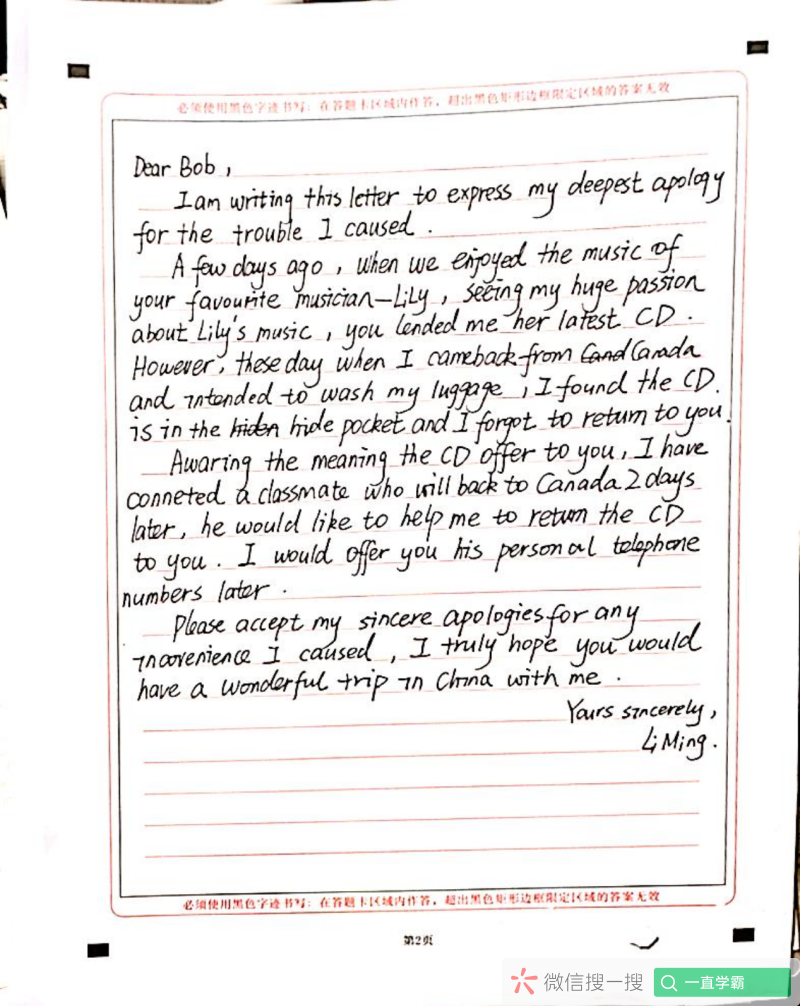 必须使用黑色字迹书写：在答题卡区域内作答，超出黑色矩形边框限定区域的答案无效
Dear Bob,
I am writing this letter to express my deepest apology
for the trouble I caused.
A few days ago, when we enjoyed the music of
your favourite musician—Lily, seeing my huge passion
about Lily's music, you lended me her latest CD.
However, these day when I cameback from Cand Canada
and intended to wash my luggage, I found the CD.
is in the hiden hide pocket and I forgot to return to you.
Awaring the meaning the CD offer to you, I have
conneted a classmate who will back to Canada 2 days
later, he would like to help me to return the CD
to you. I would offer you his personal telephone
numbers later.
Please accept my sincere apologies for any
incovenience I caused, I truly hope you would
have a wonderful trip in China with me.
Yours sincerely,
Li Ming.
必须使用黑色字迹书写：在答题卡区域内作答，超出黑色矩形边框限定区域的答案无效
第2页
微信搜一搜 一直学霸